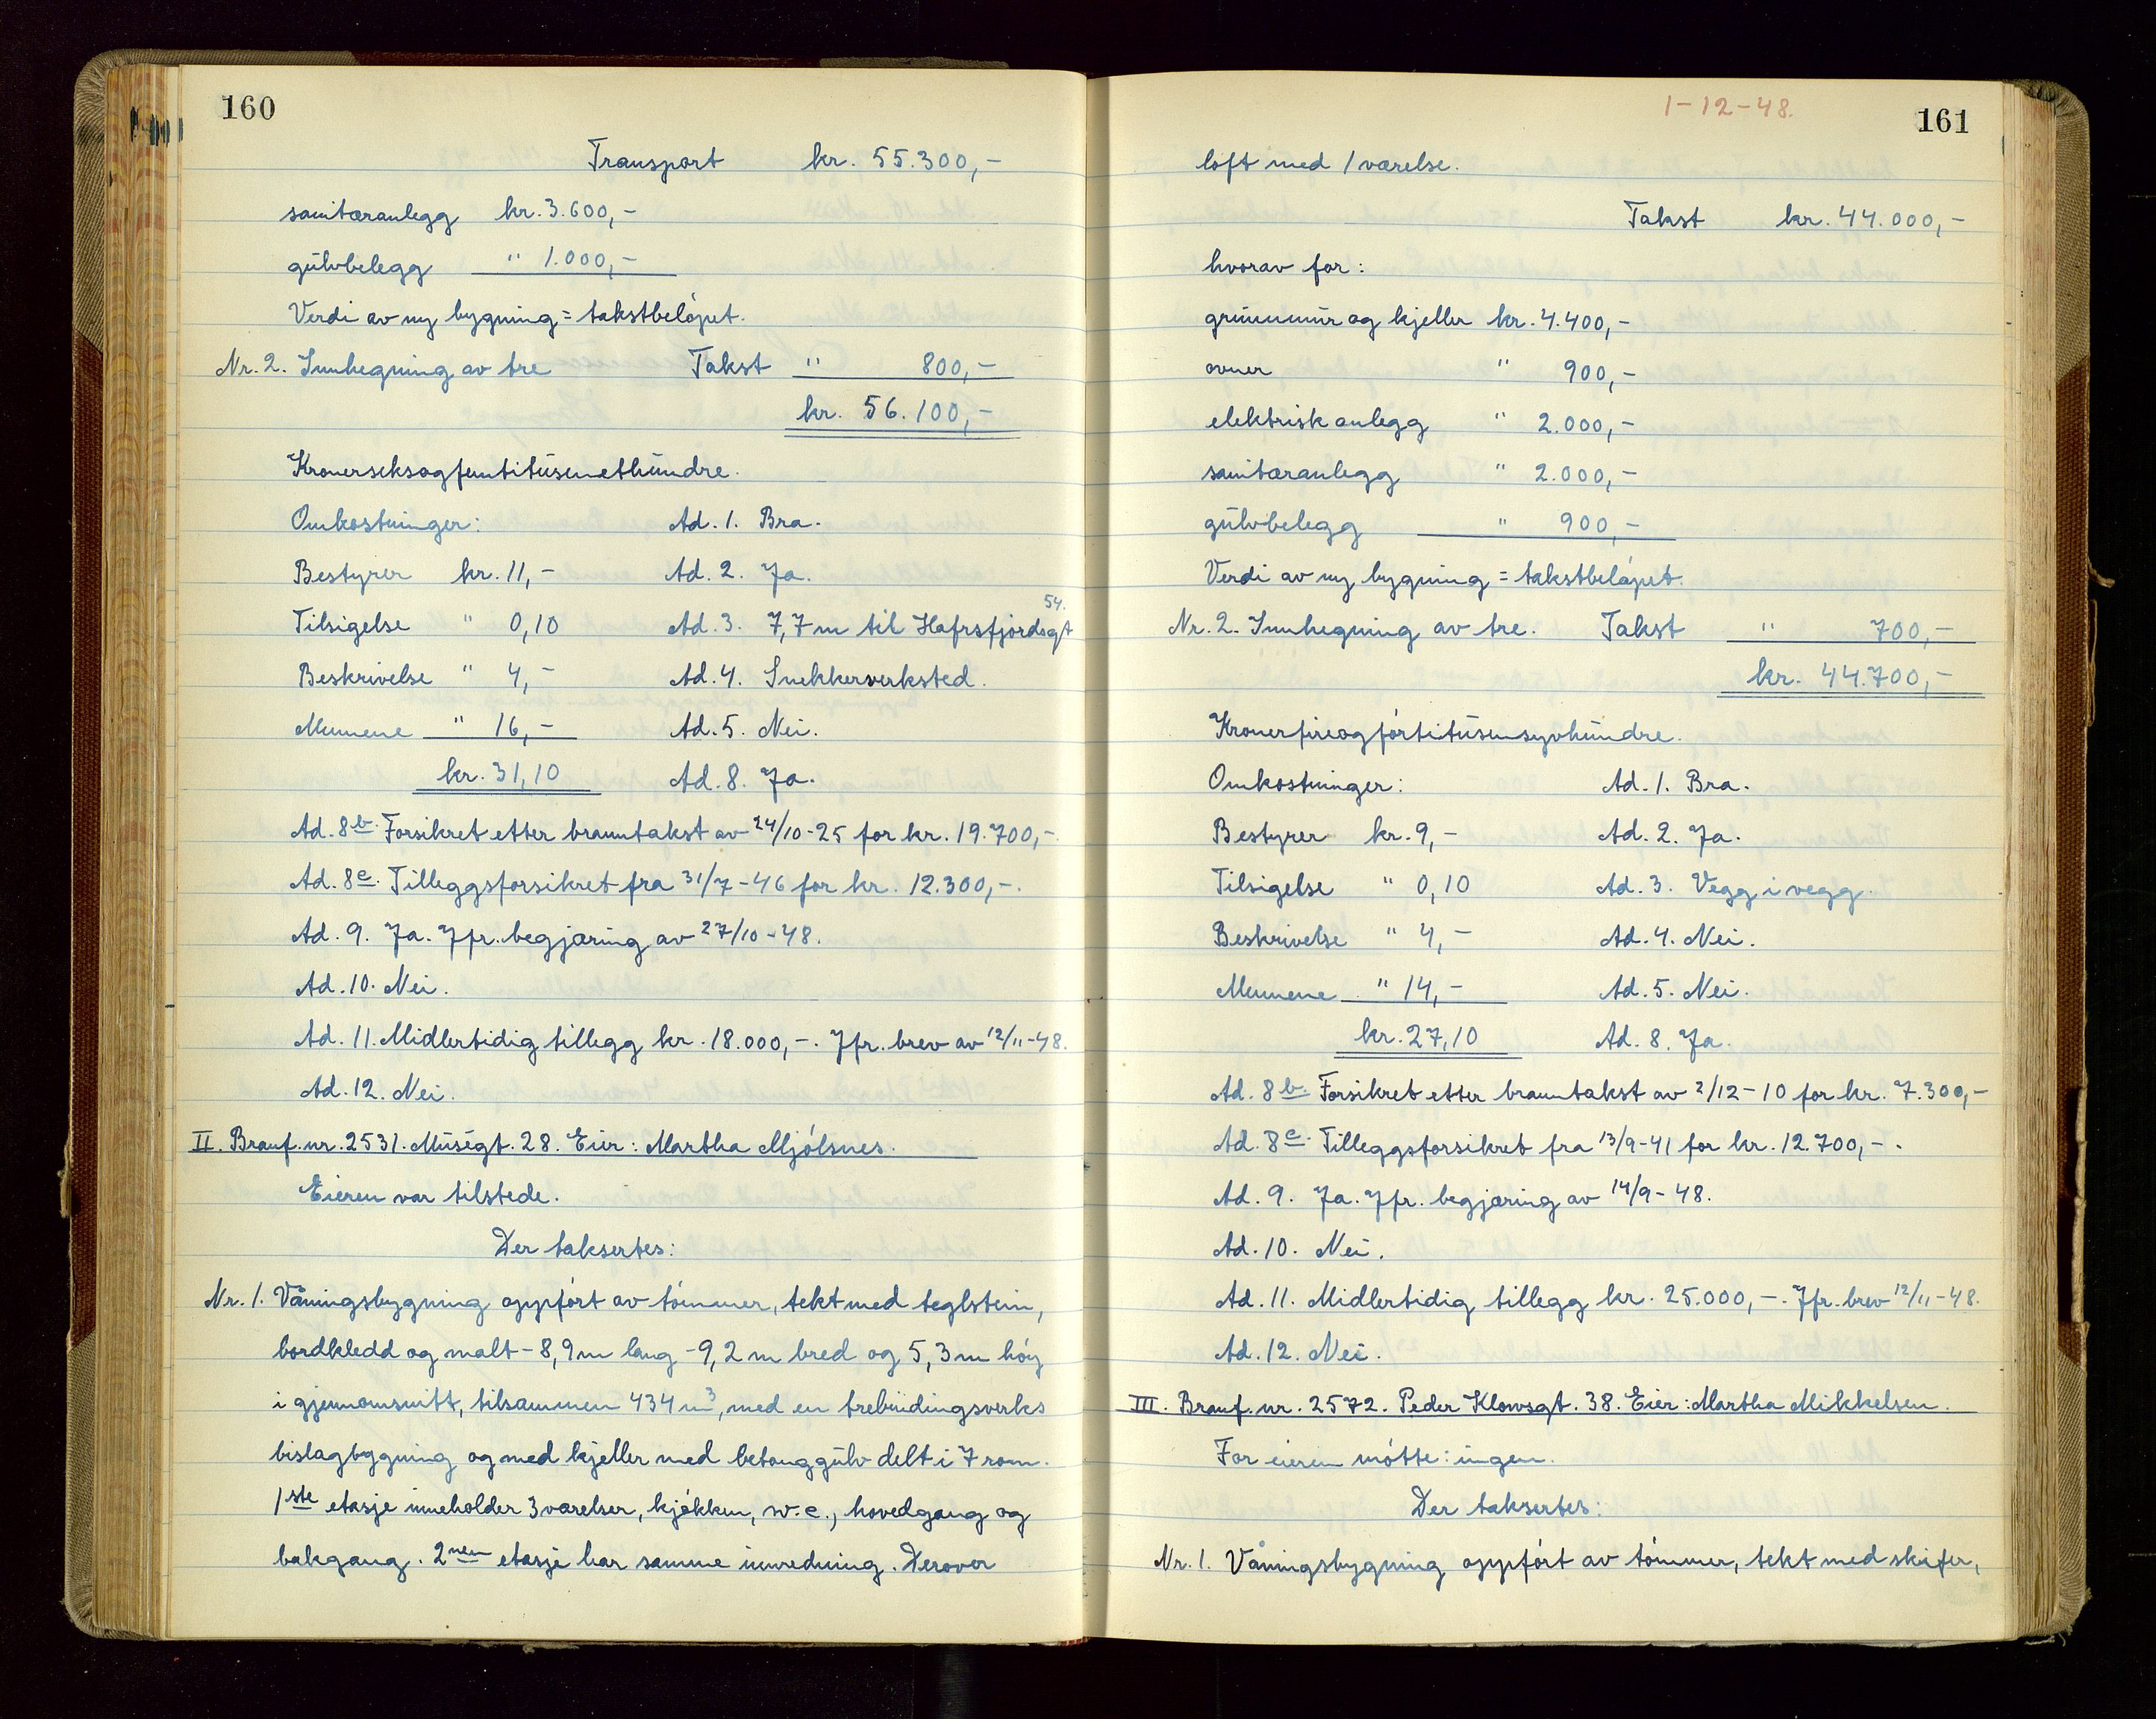 160
Transport kr. 55.300,-
sanitæranlegg kr. 3.600,-
gulvbelegg " 1.000,-
Verdi av ny bygning = takstbeløpet.
Nr. 2. Innhegning av tre Takst " 800,-
kr. 56.100,-
Kronerseksogfemtitusenethundre.
Omkostninger: Ad. 1. Bra.
Bestyrer kr. 11,- Ad. 2. Ja.
Tilsigelse " 0,10 Ad. 3. 7,7 m til Hafrsfjordsgt 54.
Beskrivelse " 4,- Ad. 4. Snekkerverksted.
Mennene " 16,- Ad. 5. Nei.
kr. 31,10 Ad. 8. Ja.
Ad. 8b. Forsikret etter branntakst av 24/10-25 for kr. 19.700,-.
Ad. 8c. Tilleggsforsikret fra 31/7-46 for kr. 12.300,-.
Ad. 9. Ja. Jfr. begjæring av 27/10-48.
Ad. 10. Nei.
Ad. 11. Midlertidig tillegg kr. 18.000,-. Jfr. brev av 12/11-48.
Ad. 12. Nei.
II. Branf. nr. 2531. Muségt. 28. Eier: Martha Mjølsnes.
Eieren var tilstede.
Der taksertes:
Nr. 1. Våningsbygning oppført av tømmer, tekt med teglstein,
bordkledd og malt - 8,9 m lang - 9,2 m bred og 5,3 m høy
i gjennomsnitt, tilsammen 434 m³, med en trebindingsverks
bislagbygning og med kjeller med betonggulv delt i 7 rom.
1ste etasje inneholder 3 værelser, kjøkken, w.c., hovedgang og
bakgang. 2nen etasje har samme innredning. Derover
1-12-48.
161
loft med 1 værelse.
Takst kr. 44.000,-
hvorav for:
grunnmur og kjeller kr. 4.400,-
ovner " 900,-
elektrisk anlegg " 2.000,-
sanitæranlegg " 2.000,-
gulvbelegg " 900,-
Verdi av ny bygning = takstbeløpet.
Nr. 2. Innhegning av tre. Takst " 700,-
kr. 44.700,-
Kronerfireogførtitusensyvhundre.
Omkostninger: Ad. 1. Bra.
Bestyrer kr. 9,- Ad. 2. Ja.
Tilsigelse " 0,10 Ad. 3. Vegg i vegg.
Beskrivelse " 4,- Ad. 4. Nei.
Mennene " 14,- Ad. 5. Nei.
kr. 27,10 Ad. 8. Ja.
Ad. 8b. Forsikret etter branntakst av 2/12-10 for kr. 7.300,-
Ad. 8c. Tilleggsforsikret fra 13/9-41 for kr. 12.700,-.
Ad. 9. Ja. Jfr. begjæring av 14/9-48.
Ad. 10. Nei.
Ad. 11. Midlertidig tillegg kr. 25.000,-. Jfr. brev 12/11-48.
Ad. 12. Nei.
III. Branf. nr. 2572. Peder Klowsgt. 38. Eier: Martha Mikkelsen.
For eieren møtte: ingen.
Der taksertes:
Nr. 1. Våningsbygning oppført av tømmer, tekt med skifer,